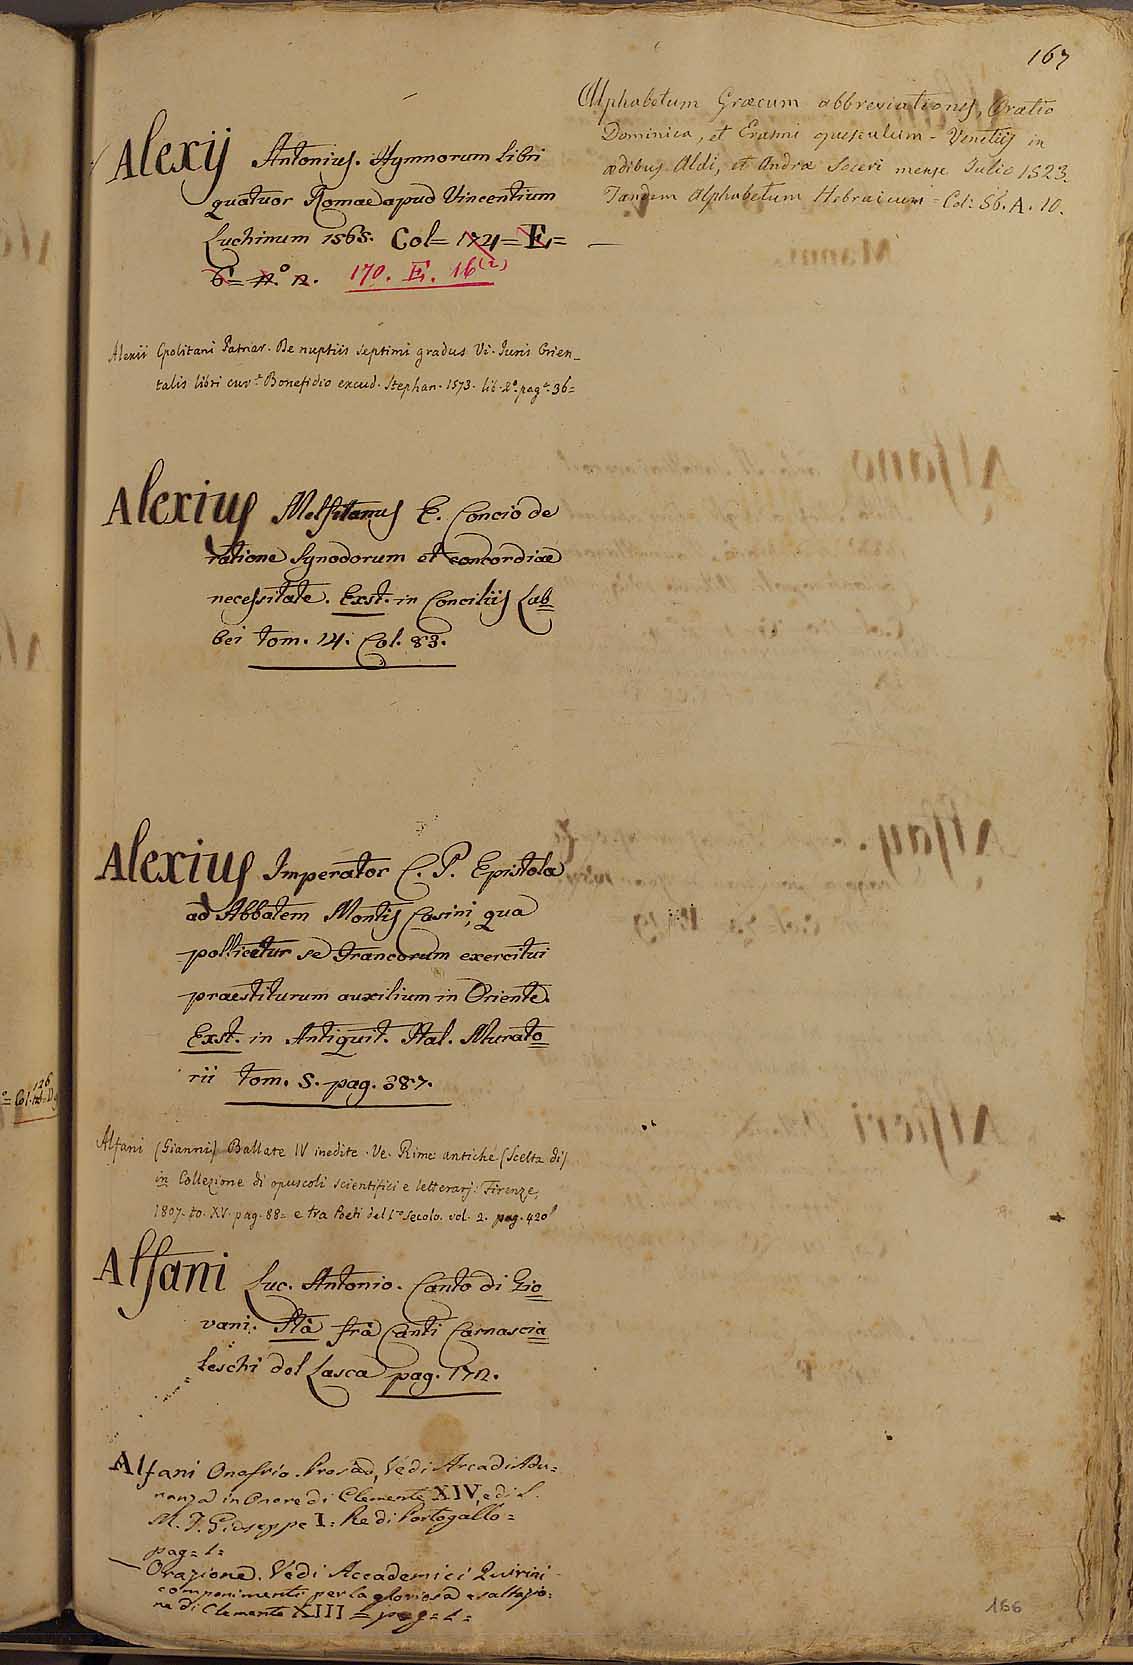 167
Alexij Antonius. Hymnorum Libri
quatuor Romae apud Vincentium
Luchinum 1565. Col= 174= E=
6= n.º 12. 170. E. 16 (2)
Alexii Cpolitani Patriar. De nuptiis septimi gradus Vi. Iuris Orien_
talis libri cur.ᵗ Bonefidio excud. Stephan. 1573. lib. 2º. pag.ᵃ 36=
Alexius Melfitanus E. Concio de
ratione Synodorum et concordiae
necessitate. Exst. in Conciliis Lab
bei tom. 14. Col. 83.
Alexius Imperator C. P. Epistola
ad Abbatem Montis Casini, qua
pollicetur se Francorum exercitui
praestiturum auxilium in Oriente.
Exst. in Antiquit. Ital. Murato
rii tom. 5. pag. 387.
Alfani (Gianni) Ballate IV inedite. Ve. Rime antiche (Scelta di)
in Collezione di opuscoli scientifici e letterarj. Firenze,
1807. to. XV. pag. 88= e tra Poeti del 1.º secolo. vol. 2. pag. 420
Alfani Luc. Antonio. Canto di Gio
vani. Stà frà Canti Carnascia
leschi del Lasca pag. 172.
Alfani Onofrio. Prosa, Vedi Arcadi Adu=
nanza in Onore di Clemente XIV, e di S.
M. F. Gioseppe I= Re di Portogallo=
pag= 1=
— Orazione. Vedi Accademici Quirini
componimenti per la gloriosa esaltazio=
ne di Clemente XIII= pag= 1=
Alphabetum Græcum abbreviationes, Oratio
Dominica, et Erasmi opusculum - Venetijs in
ædibus Aldi, et Andræ Soceri mense Julio 1523.
Tandem Alphabetum Hebraicum = Col: 56. A. 10.
166